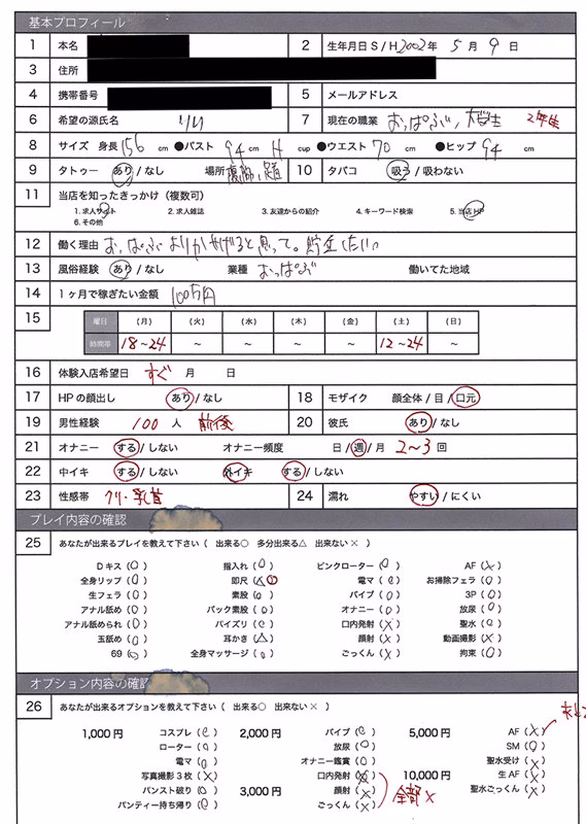 基本プロフィール
1 本名 2 生年月日 S / H 2002年 5月 9日
3 住所
4 携帯番号 5 メールアドレス
6 希望の源氏名 りり 7 現在の職業 おっぱぶ、大学生 2年生
8 サイズ 身長 156 cm ●バスト 94 cm H cup ●ウエスト 70 cm ●ヒップ 94 cm
9 タトゥー あり / なし 場所 10 タバコ 吸う / 吸わない
11 当店を知ったきっかけ（複数可）
1. 求人サイト 2. 求人雑誌 3. 友達からの紹介 4. キーワード検索 5. 当店HP
6. その他
12 働く理由 おっぱぶよりかせげると思って。貯金したい
13 風俗経験 あり / なし 業種 おっぱぶ 働いてた地域
14 1ヶ月で稼ぎたい金額 100万円
15 曜日 （月） （火） （水） （木） （金） （土） （日）
時間帯 18～24 ～ ～ ～ ～ 12～24 ～
16 体験入店希望日 すぐ 月 日
17 HPの顔出し あり / なし 18 モザイク 顔全体 / 目 / 口元
19 男性経験 100 人 前後 20 彼氏 あり / なし
21 オナニー する / しない オナニー頻度 日 / 週 / 月 2～3 回
22 中イキ する / しない 外イキ する / しない
23 性感帯 クリ・乳首 24 濡れ やすい / にくい
プレイ内容の確認
25 あなたが出来るプレイを教えて下さい（ 出来る○ 多分出来る△ 出来ない× ）
Dキス (○) 指入れ (○) ピンクローター (○) AF (×)
全身リップ (○) 即尺 (△○) 電マ (○) お掃除フェラ (○)
生フェラ (○) 素股 (○) バイブ (○) 3P (○)
アナル舐め (○) バック素股 (○) オナニー (○) 放尿 (○)
アナル舐められ (○) パイズリ (○) 口内発射 (×) 聖水 (○)
玉舐め (○) 耳かき (△) 顔射 (×) 動画撮影 (×)
69 (○) 全身マッサージ (○) ごっくん (×) 拘束 (○)
オプション内容の確認
26 あなたが出来るオプションを教えて下さい（ 出来る○ 出来ない× ）
1,000円 コスプレ (○) 2,000円 バイブ (○) 5,000円 AF (×)
ローター (○) 放尿 (○) SM (○)
電マ (○) オナニー鑑賞 (○) 聖水受け (×)
写真撮影3枚 (×) 口内発射 (×) 10,000円 生AF (×)
パンスト破り (○) 3,000円 顔射 (×) 全部× 聖水ごっくん (×)
パンティー持ち帰り (○) ごっくん (×)